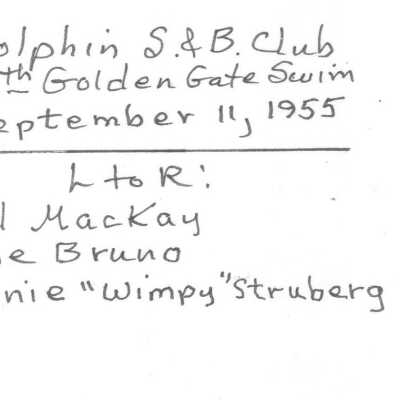 olphin S.&B. Club
th Golden Gate Swim
eptember 11, 1955
L to R:
l MacKay
e Bruno
nie "Wimpy" Struberg